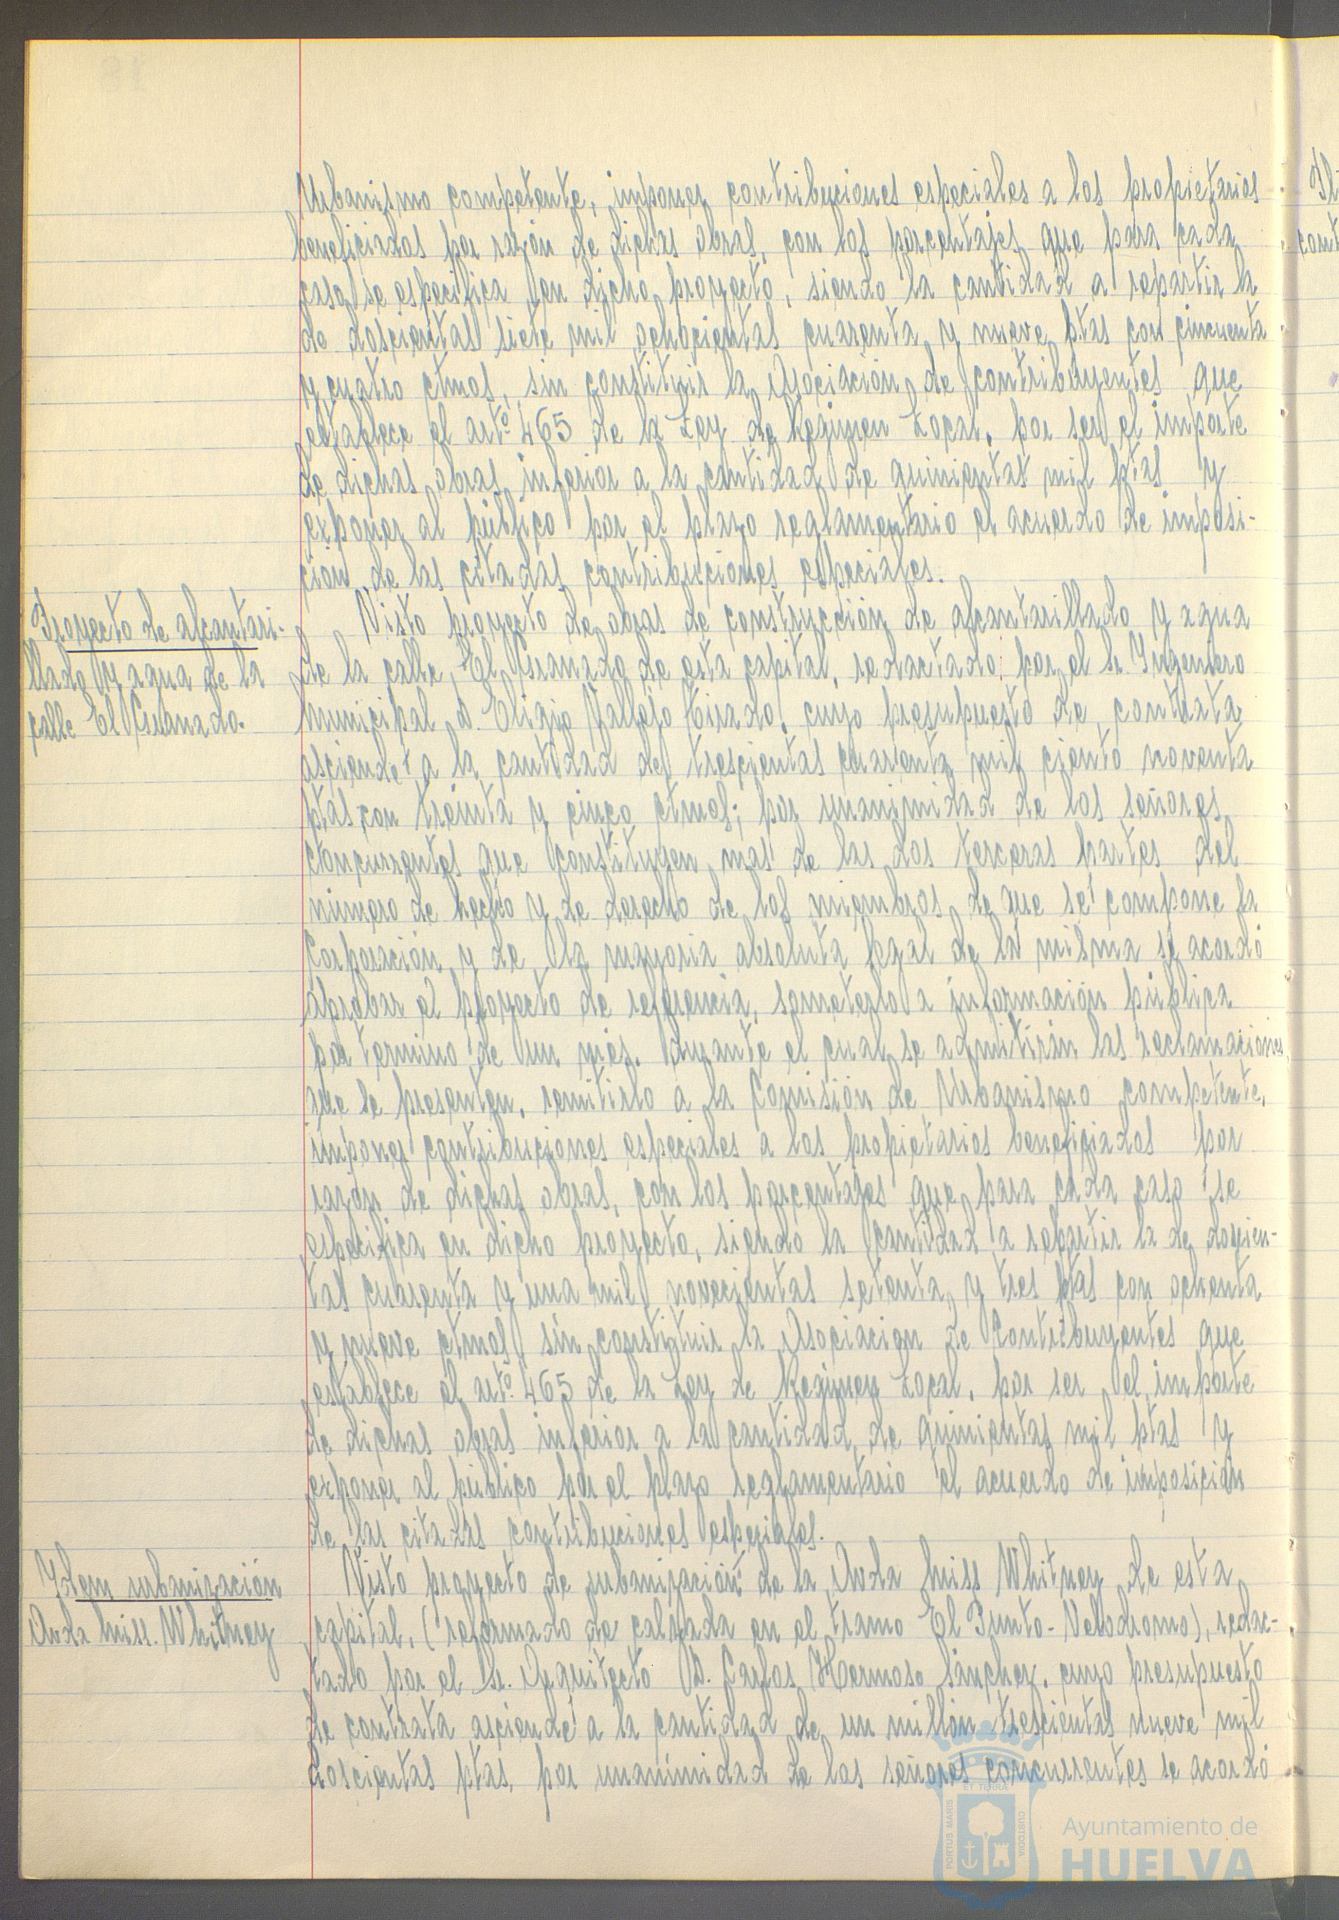 Urbanismo competente, imponer contribuciones especiales a los propietarios
beneficiados por razón de dichas obras, con los porcentajes que para cada
caso se especifica en dicho proyecto, siendo la cantidad a repartir la
de doscientas siete mil ochocientas cuarenta y nueve ptas con cincuenta
y cuatro ctmos, sin constituir la Asociación de Contribuyentes que
establece el artº 465 de la Ley de Régimen Local, por ser el importe
de dichas obras inferior a la cantidad de quinientas mil ptas y
exponer al público por el plazo reglamentario el acuerdo de imposi-
ción de las citadas contribuciones especiales.
Proyecto de alcantari-
llado y agua de la
calle El Granado.
Visto proyecto de obras de construcción de alcantarillado y agua
de la calle, El Granado de esta capital, redactado por el Sr. Ingeniero
Municipal D. Eligio Vallejo Tirado, cuyo presupuesto de contrata
asciende a la cantidad de trescientas cuarenta mil ciento noventa
ptas con treinta y cinco ctmos; por unanimidad de los señores
concurrentes que constituyen mas de las dos terceras partes del
número de hecho y de derecho de los miembros de que se compone la
Corporación y de la mayoria absoluta legal de la misma se acordó
aprobar el proyecto de referencia, someterlo a información pública
por termino de un mes, durante el cual se admitirán las reclamaciones
que se presenten, remitirlo a la Comisión de Urbanismo competente,
imponer contribuciones especiales a los propietarios beneficiados por
razón de dichas obras, con los porcentajes que para cada caso se
especifica en dicho proyecto, siendo la cantidad a repartir la de doscien-
tas cuarenta y una mil novecientas setenta y tres ptas con ochenta
y nueve ctmos sin constituir la Asociacion de Contribuyentes que
establece el artº 465 de la Ley de Régimen Local, por ser el importe
de dichas obras inferior a la cantidad de quinientas mil ptas y
exponer al público por el plazo reglamentario el acuerdo de imposición
de las citadas contribuciones especiales.
Idem urbanización
Avda Miss. Whitney
Visto proyecto de urbanización de la Avda Miss Whitney de esta
capital, (reformado de calzada en el tramo El Punto-Velodromo), redac-
tado por el Sr. Arquitecto D. Carlos Hermoso Sánchez, cuyo presupuesto
de contrata asciende a la cantidad de un millón trescientas nueve mil
doscientas ptas, por unanimidad de los señores concurrentes se acordó
PORTUS MARIS
ET TERRAE
CUSTODIA
Ayuntamiento de
HUELVA